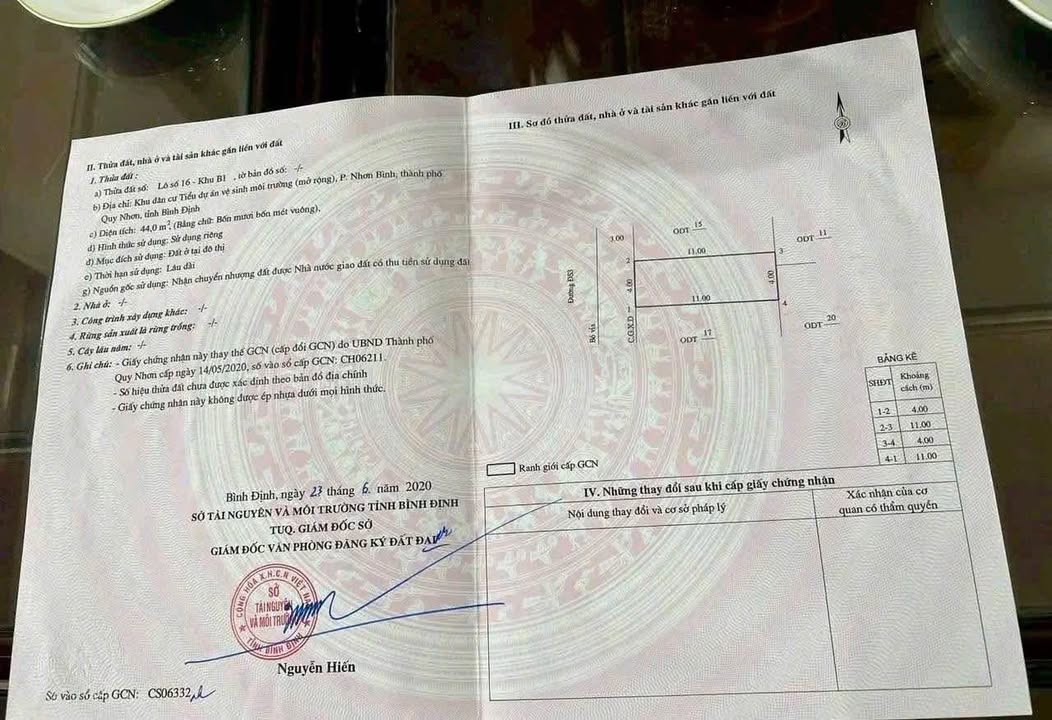 II. Thửa đất, nhà ở và tài sản khác gắn liền với đất
1. Thửa đất :
a) Thửa đất số: Lô số 16 - Khu B1 , tờ bản đồ số: -/-
b) Địa chỉ: Khu dân cư Tiểu dự án vệ sinh môi trường (mở rộng), P. Nhơn Bình, thành phố
Quy Nhơn, tỉnh Bình Định
c) Diện tích: 44,0 m², (Bằng chữ: Bốn mươi bốn mét vuông),
d) Hình thức sử dụng: Sử dụng riêng
đ) Mục đích sử dụng: Đất ở tại đô thị
e) Thời hạn sử dụng: Lâu dài
g) Nguồn gốc sử dụng: Nhận chuyển nhượng đất được Nhà nước giao đất có thu tiền sử dụng đất
2. Nhà ở: -/-
3. Công trình xây dựng khác: -/-
4. Rừng sản xuất là rừng trồng: -/-
5. Cây lâu năm: -/-
6. Ghi chú: - Giấy chứng nhận này thay thế GCN (cấp đổi GCN) do UBND Thành phố
Quy Nhơn cấp ngày 14/05/2020, số vào sổ cấp GCN: CH06211.
- Số hiệu thửa đất chưa được xác định theo bản đồ địa chính
- Giấy chứng nhận này không được ép nhựa dưới mọi hình thức.
Bình Định, ngày 23 tháng 6 năm 2020
SỞ TÀI NGUYÊN VÀ MÔI TRƯỜNG TỈNH BÌNH ĐỊNH
TUQ. GIÁM ĐỐC SỞ
GIÁM ĐỐC VĂN PHÒNG ĐĂNG KÝ ĐẤT ĐAI
CỘNG HÒA X.H.C.N VIỆT NAM
SỞ
TÀI NGUYÊN
VÀ MÔI TRƯỜNG
TỈNH BÌNH ĐỊNH
Nguyễn Hiến
Số vào sổ cấp GCN: CS06332
III. Sơ đồ thửa đất, nhà ở và tài sản khác gắn liền với đất
3.00
ODT 15
ODT 11
2
11.00
3
Đường ĐS3
4.00
4.00
Bó vỉa
C.G.X.D
1
11.00
4
ODT 17
ODT 20
BẢNG KÊ
SHĐT Khoảng cách (m)
1-2 4.00
2-3 11.00
3-4 4.00
4-1 11.00
Ranh giới cấp GCN
IV. Những thay đổi sau khi cấp giấy chứng nhận
Nội dung thay đổi và cơ sở pháp lý
Xác nhận của cơ
quan có thẩm quyền